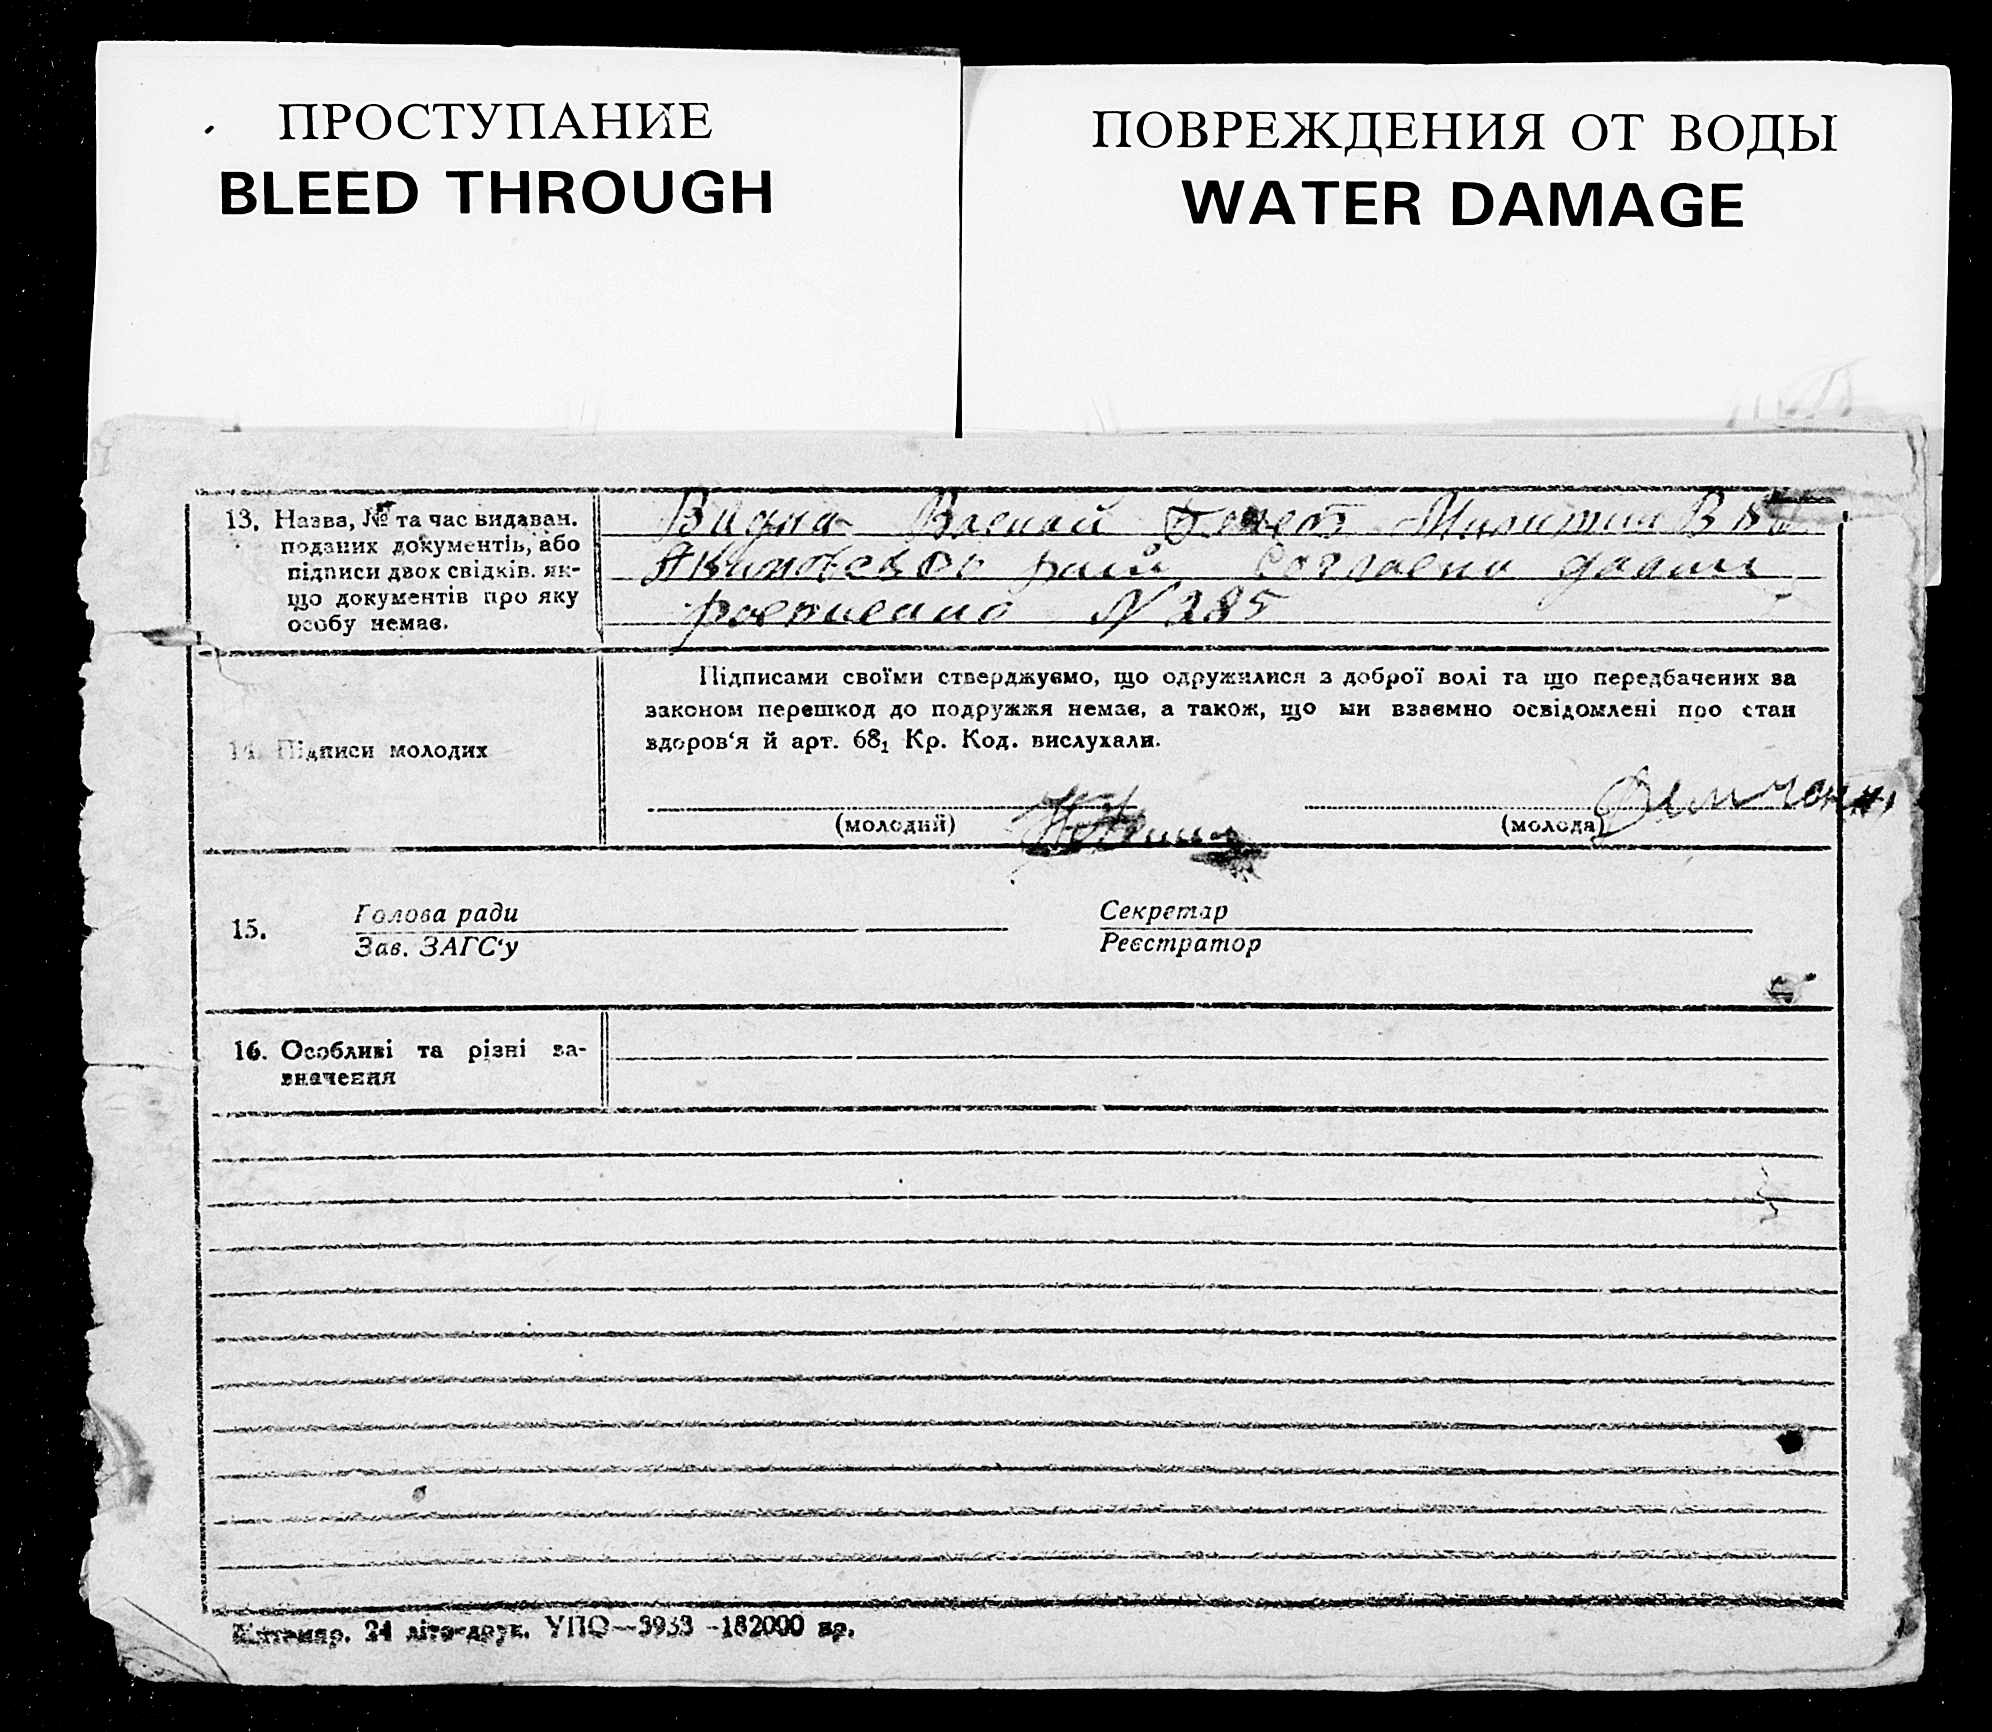 ПРОСТУПАНИЕ
BLEED THROUGH
ПОВРЕЖДЕНИЯ ОТ ВОДЫ
WATER DAMAGE
13. Назва, № та час видаван.
поданих документів, або
підписи двох свідків. як-
що документів про яку
особу немає.
Видна Билет
рай согласно
N 285
14. Підписи молодих
Підписами своїми стверджуємо, що одружилися з доброї волі та що передбачених за
законом перешкод до подружжя немає, а також, що ми взаємно освідомлені про стан
здоров‘я й арт. 68₁ Кр. Код. вислухали.
(молодий)
(молода)
15.
Голова ради
Зав. ЗАГС‘у
Секретар
Реєстратор
16. Особливі та різні за-
значення
Житомир. 24 літо-друк. УПО—3933 -182000 пр.